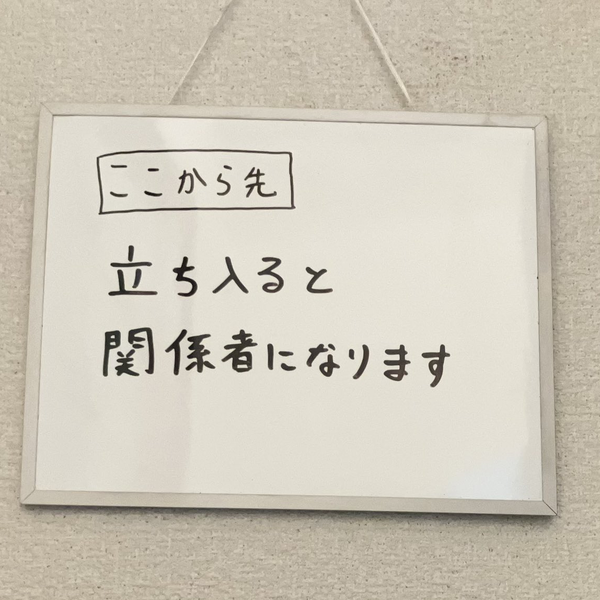 ここから先
立ち入ると
関係者になります